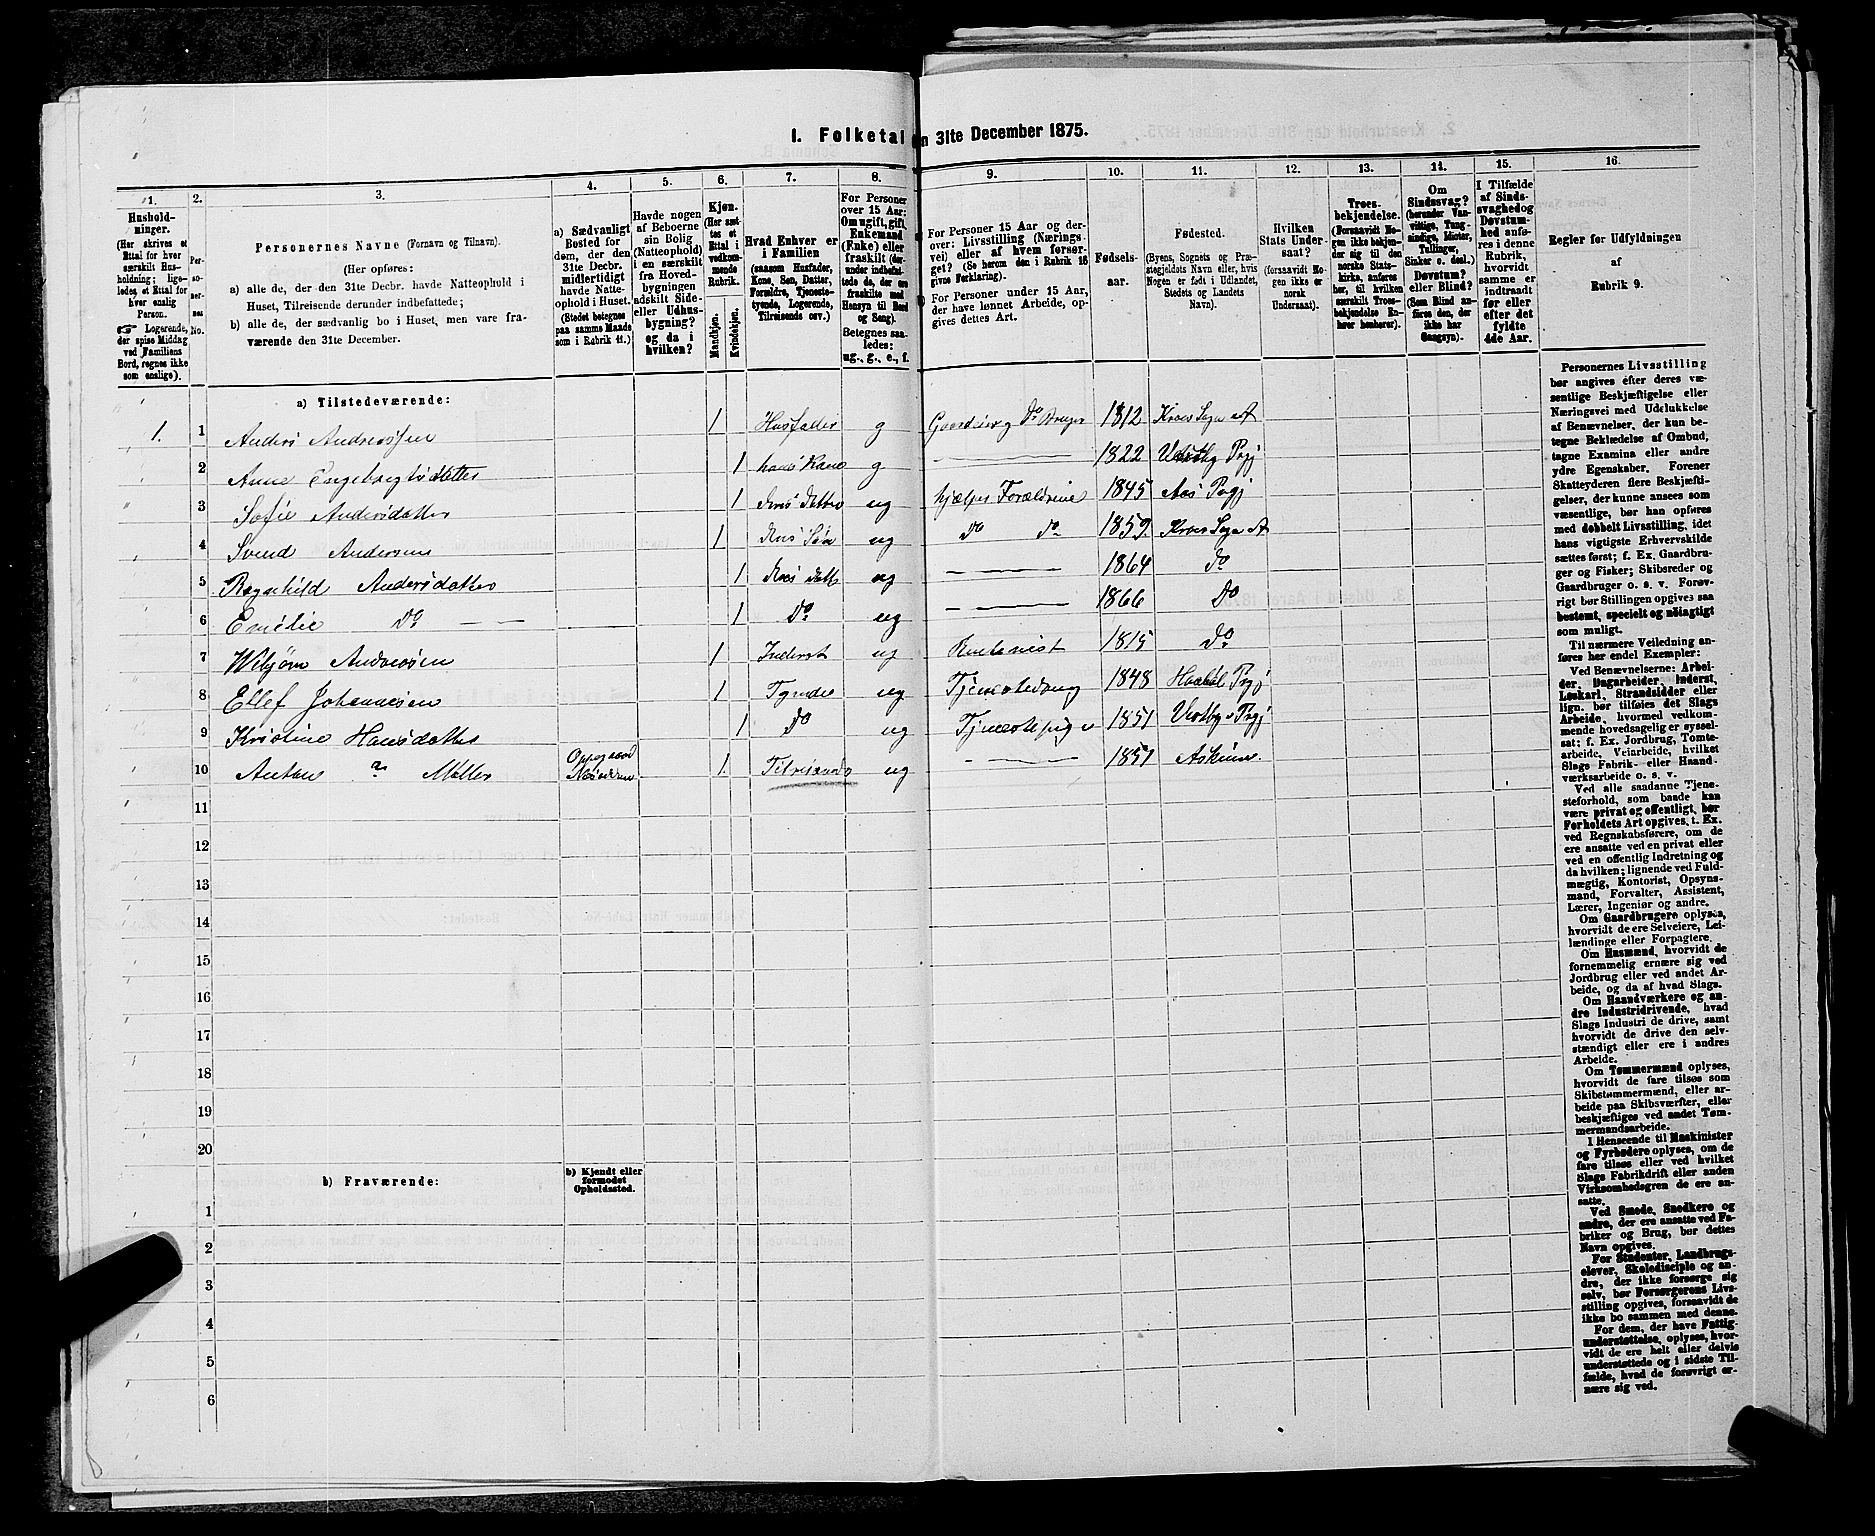 I. Folketal den 31te December 1875.
1. 2. 3. 4. 5. 6. 7. 8. 9. 10. 11. 12. 13. 14. 15. 16.
Husholdninger.
(Her skrives et Ettal for hver særskilt Husholdning; ligeledes et Ettal for hver enslig Person.
☞ Logerende, der spise Middag ved Familiens Bord, regnes ikke som enslige).
Personernes No.
Personernes Navne (Fornavn og Tilnavn).
(Her opføres:
a) alle de, der den 31te Decbr. havde Natteophold i
Huset, Tilreisende derunder indbefattede;
b) alle de, der sædvanlig bo i Huset, men vare fra-
værende den 31te December.
a) Sædvanligt
Bosted for
dem, der den
31te Decbr.
midlertidigt
havde Natte-
ophold i Huset.
(Stedet betegnes
paa samme Maade
som i Rubrik 11.)
Havde nogen
af Beboerne
sin Bolig
(Natteophold)
i en særskilt
fra Hoved-
bygningen
adskilt Side-
eller Udhus-
bygning?
og da i
hvilken?
Kjøn.
(Her sæt-
tes et
Ettal i
vedkom-
mende
Rubrik.
Mandkjøn.
Kvindekjøn.
Hvad Enhver er
i Familien
(saasom Husfader,
Kone, Søn, Datter,
Forældre, Tjeneste-
tyende, Logerende,
Tilreisende osv.)
For Personer
over 15 Aar:
Om ugift, gift,
Enkemand
(Enke) eller
fraskilt (der-
under indbefat-
tede de, der ere
fraskilte med
Hensyn til Bord
og Seng).
Betegnes saa-
ledes:
ug., g., e., f.
For Personer 15 Aar og der-
over: Livsstilling (Nærings-
vei) eller af hvem forsør-
get? (Se herom den i Rubrik 16
givne Forklaring).
For Personer under 15 Aar,
der have lønnet Arbeide, op-
gives dettes Art.
Fødsels-
aar.
Fødested.
(Byens, Sognets og Præ-
stegjeldets Navn eller, hvis
Nogen er født i Udlandet,
Stedets og Landets
Navn).
Hvilken
Stats Under-
saat?
(forsaavidt No-
gen ikke er
norsk
Undersaat).
Troes-
bekjendelse.
(Forsaavidt No-
gen ikke bekjen-
der sig til den
norske Stats-
kirke, anføres
her, til hvilken
særskilt Troes-
bekjendelse En-
hver henhører).
Om
Sindssvag?
(herunder Van-
vittige, Tung-
sindige, Idioter,
Tullinger,
Sinker o. desl.)
Døvstum?
eller Blind?
(Som Blind an-
føres den, der
ikke har
Gangsyn).
I Tilfælde
af Sinds-
svaghed og
Døvstum-
hed anfø-
res i denne
Rubrik,
hvorvidt
samme er
indtraadt
før eller
efter det
fyldte
4de Aar.
Regler for Udfyldningen
af
Rubrik 9.
a) Tilstedeværende:
1. 1 Anders Andreasen 1 Husfader g Gaardeier g Do Bruger 1812 Kroer Sogn
2 Anne Engebregtsdatter 1 hans Kone g 1822 Vestby Prgj
3 Sofie Andersdatter 1 deres Datter ug hjælper Forældrene 1845 Aas Prgj
4 Svend Andersen 1 deres Søn ug Do Do 1859. Kroer Sogn
5 Ragnhild Andersdatter 1 deres Datt ug 1864 Do
6 Emelie Do 1 Do ug 1866 Do
7 Andreasen 1 Inderst ug 1815 Do
8 Ellef Johannesen 1 Tyende ug Tjenestedreng 1848 Haabøl Prgj
9 Kristine Hansdatter 1 Do ug Tjenestepige 1851 Vestby Prgj
10 Anton Møller Oppegaard Næsodden 1. Tilreisende ug 1851 Askim.
11
12
13
14
15
16
17
18
19
20
b) Fraværende:
b) Kjendt eller
formodet
Opholdssted.
1
2
3
4
5
6
Personernes Livsstilling
bør angives efter deres væ-
sentlige Beskjæftigelse eller
Næringsvei med Udelukkelse
af Benævnelser, der kun be-
tegne Beklædelse af Ombud,
tagne Examina eller andre
ydre Egenskaber. Forener
Skatteyderen flere Beskjæfti-
gelser, der kunne ansees som
væsentlige, bør han opføres
med dobbelt Livsstilling, idet
hans vigtigste Erhvervskilde
sættes først; f. Ex. Gaardbru-
ger og Fisker; Skibsreder og
Gaardbruger o. s. v. Forøv-
rigt bør Stillingen opgives saa
bestemt, specielt og nøiagtigt
som muligt.
Til nærmere Veiledning an-
føres her endel Exempler:
Ved Benævnelserne: Arbei-
der, Dagarbeider, Inderst,
Løskarl, Strandsidder eller
lign. bør tilføies det Slags
Arbeide, hvormed vedkom-
mende hovedsagelig er syssel-
sat; f. Ex. Jordbrug, Tomte-
arbeide, Veiarbeide, hvilket
Slags Fabrik- eller Haand-
værksarbeide o. s. v.
Ved alle saadanne Tjene-
steforhold, som baade kan
være privat og offentligt, bør
Forholdets Art opgives, t. Ex.
ved Regnskabsførere, om de
ere ansatte ved en privat eller
ved en offentlig Indretning og
da hvilken; lignende ved Fuld-
mægtig, Kontorist, Opsyns-
mand, Forvalter, Assistent,
Lærer, Ingeniør og andre.
Om Gaardbrugere oplyses,
hvorvidt de ere Selveiere, Lei-
lændinge eller Forpagtere.
Om Husmænd, hvorvidt de
fornemmelig ernære sig ved
Jordbrug eller ved andet Ar-
beide, og da af hvad Slags.
Om Haandværkere og an-
dre Industridrivende, hvad
Slags Industri de drive, samt
hvorvidt de drive den selv-
stændigt eller ere i andres
Arbeide.
Om Tømmermænd oplyses,
hvorvidt de fare tilsøs som
Skibstømmermænd, eller ar-
beide paa Skibsværfter, eller
beskjæftiges ved andet Tøm-
mermandsarbeide.
I Henseende til Maskinister
og Fyrbødere oplyses, om de
fare tilsøs eller ved hvilket
Slags Fabrikdrift eller anden
Virksomhedsgren de ere an-
satte.
Ved Smede, Snedkere og
andre, der ere ansatte ved Fa-
briker og Brug, bør dettes
Navn opgives.
For Studenter, Landbrugs-
elever, Skoledisciple og an-
dre, der ikke forsørge sig
selv, bør Forsørgerens Livs-
stilling opgives, forsaavidt de
ikke bo sammen med denne.
For dem, der have Fattig-
understøttelse, oplyses, hvor-
vidt de ere helt eller delvis
understøttede og i sidste Til-
fælde, hvad de forøvrigt er-
nære sig ved.